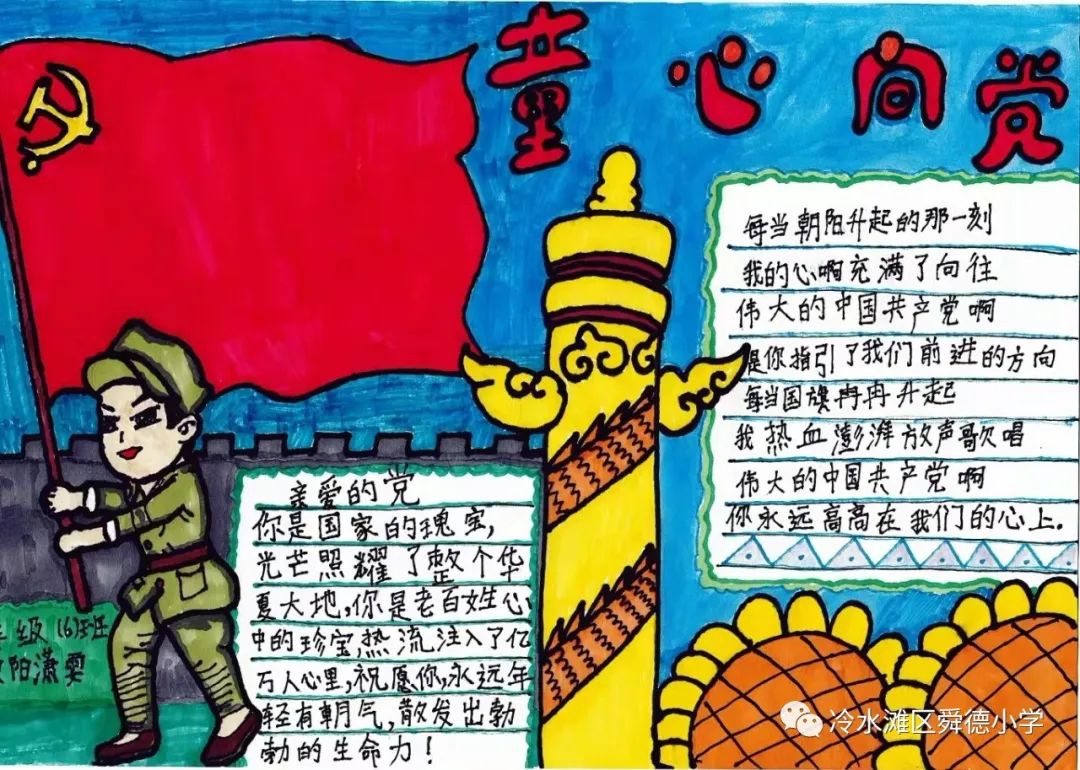 童心向党
每当朝阳升起的那一刻
我的心啊充满了向往
伟大的中国共产党啊
是你指引了我们前进的方向
每当国旗冉冉升起
我热血澎湃放声歌唱
伟大的中国共产党啊
你永远高高在我们的心上.
亲爱的党
你是国家的瑰宝,
光芒照耀了整个华
夏大地,你是老百姓心
中的珍宝,热流注入了亿
万人心里,祝愿你,永远年
轻有朝气,散发出勃
勃的生命力!
级(6)班
阳潇雯
冷水滩区舜德小学